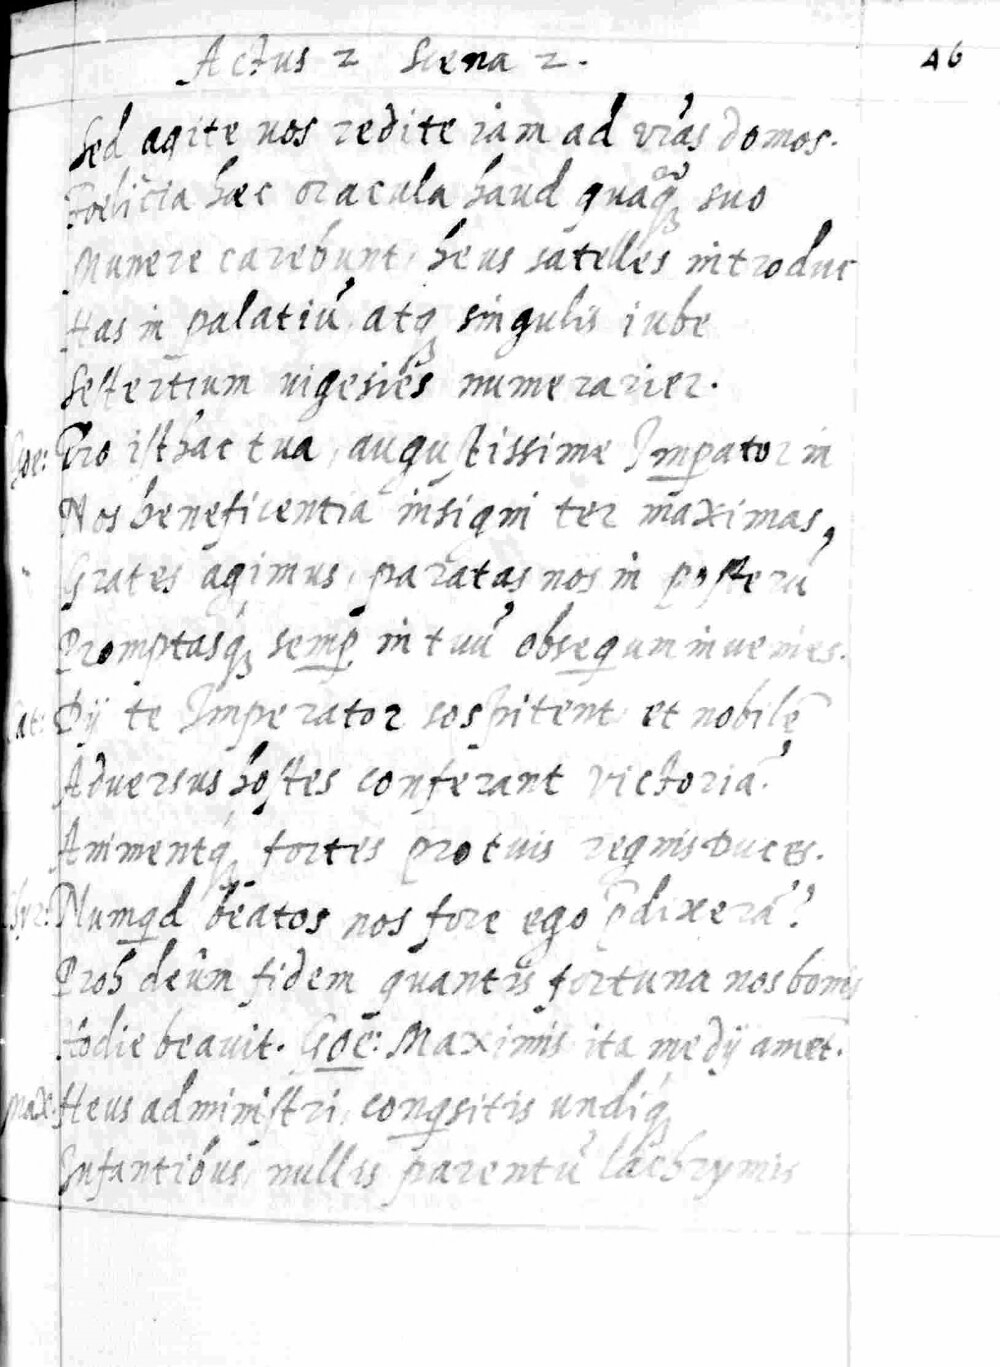 Actus 2 Scena 2. 46
Sed agite vos redite iam ad vr̃as domos.
Foelicia haec oracula haud quaq̃ suo
Munere carebunt, heus satelles introduc
Has in palatiũ, atq; singulis iube
Sestertium vigesies numerarier.
Goe: Pro isthac tua, augustissime Imp̱ator in
Nos beneficentia insigni ter maximas,
Grates agimus, paratas nos in posterũ
Promptasq; semp̱ in tuũ obseq̱um invenies.
Cat: Dij te Imperator sospitent, et nobilẽ
Adversus hostes conferant victoriã.
Animentq; fortes pro tuis regnis Duces.
Thyr: Numq̱d beatos nos fore ego p̃dixerã?
Proh deûm fidem quantis fortuna nos bonis
Hodie beavit. Goe: Maximis ita me dij amẽt.
Max: Heus administri, conq̱sitis undiq;
Infantibus, nullis parentũ lachrymis